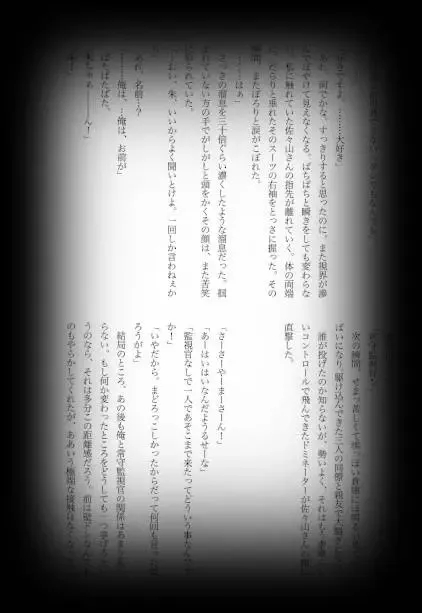 好きです。………大好き」
あれ、何でかな、すっきりすると思ったのに。また視界が滲
んでぼやけて見えなくなる。ぱちぱちと瞬きをしても変わらな
私に触れていた佐々山さんの指先が離れていく。体の両端
だらりと垂れたそのスーツの右袖をとっさに握った。その
瞬間、またぽろりと涙がこぼれた。
「……はぁ」
さっきの溜息を三十倍ぐらい濃くしたような溜息だった。掴
まれていない方の手でがしがしと頭をかくその顔は、また苦笑
いいからよく聞いとけよ。一回しか言わねぇか
あれ、名前…？
「……俺は、…俺は、お前が」
ぱたぱたぱた。
次の瞬間、せまっ苦しくて埃っぽい倉庫には
ぱいになり駆け込んできた三人の同僚と親友で大騒ぎ
誰が投げたのか知らないが、勢いよく、それはもう
いコントロールで飛んできたドミネーターが佐々山さん
直撃した。
「さーさーやーまーさーん！」
「あーはいはいなんだようるせーな」
「監視官なしで一人であそこまで来たってどういう事
か！」
「いやだから、まどろっこしかったからだって何回も
ろうがよ」
結局のところ、あの後も俺と常守監視官の関係はあま
らない。もし何か変わったところをどうしても一つ挙げ
うのなら、それは多分この距離感だろう。前は
のもやらかしてくれたが、ああいう極端な接触は